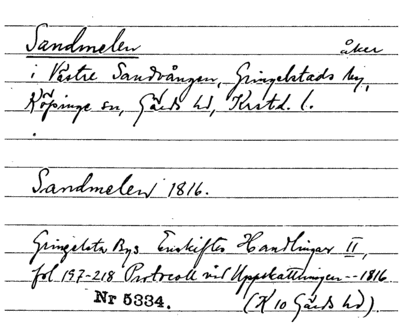 Sandmelen åker
i Västre Sandvången, Gringelstads by,
Köpinge sn, Gärds hd, Krstd. l.
Sandmelen 1816.
Gringelsta Bys Enskiftes Handlingar II,
fol 197-218 Protocoll vid Uppskattningen -- 1816
Nr 5334. (K 10 Gärds hd).